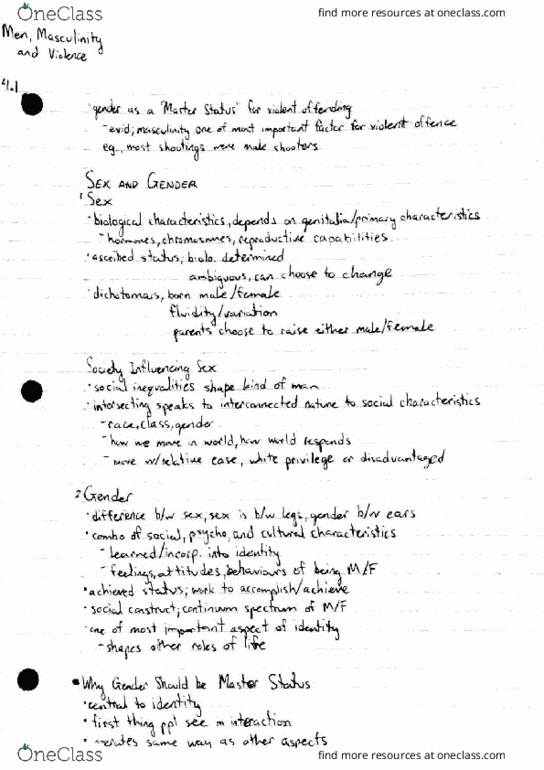 OneClass
find more resources at oneclass.com
Men, Masculinity
and Violence
4.1
· gender as a "Master Status" for violent offending
- evid; masculinity one of most important factor for violent offence
eg., most shootings were male shooters
SEX AND GENDER
1 Sex
· biological characteristics, depends on genitalia/primary characteristics
- hormones, chromosomes, reproductive capabilities
· ascribed status; biolo. determined
ambiguous, can choose to change
· dichotomous, born male/female
fluidity/variation
parents choose to raise either male/female
Society Influencing Sex
· social inequalities shape kind of man
· intersecting speaks to interconnected nature to social characteristics
- race, class, gender
- how we move in world, how world responds
- move w/relative ease, white privilege or disadvantaged
2 Gender
· difference b/w sex, sex is b/w legs, gender b/w ears
· combo of social, psycho, and cultural characteristics
- learned/incorp. into identity
- feelings, attitudes, behaviours of being M/F
· achieved status; work to accomplish/achieve
· social construct; continuum spectrum of M/F
· one of most important aspect of identity
- shapes other roles of life
• Why Gender Should be Master Status
· central to identity
· first thing ppl see in interaction
· same way as other aspects
OneClass
find more resources at oneclass.com